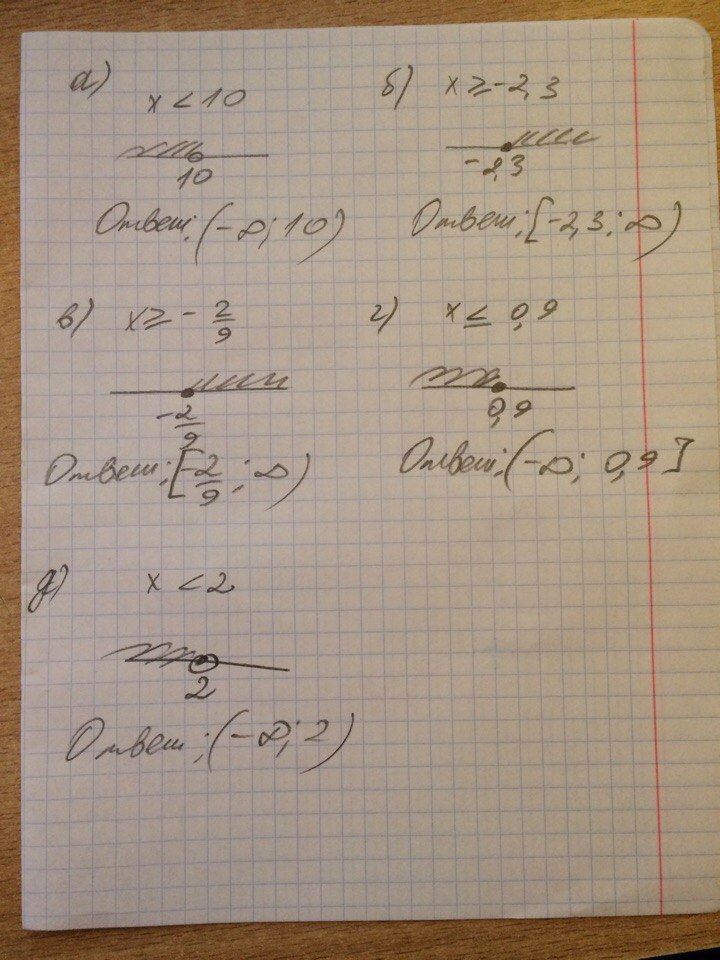 а) x < 10
10
Ответ: (-∞; 10)
б) x ≥ -2,3
-2,3
Ответ: [-2,3; ∞)
в) x ≥ -2/9
-2/9
Ответ: [-2/9; ∞)
г) x ≤ 0,9
0,9
Ответ: (-∞; 0,9]
д) x < 2
2
Ответ: (-∞; 2)